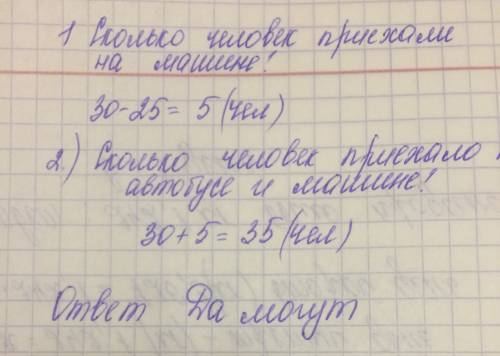 1 Сколько человек приехали
на машине!
30-25= 5 (чел)
2.) Сколько человек приехало
автобусе и машине!
30+5= 35 (чел)
Ответ Да могут